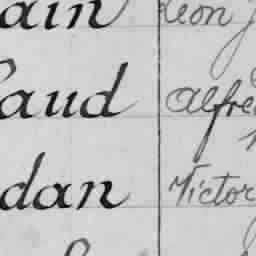 ain Léon J
aud Alfre
dan Victor